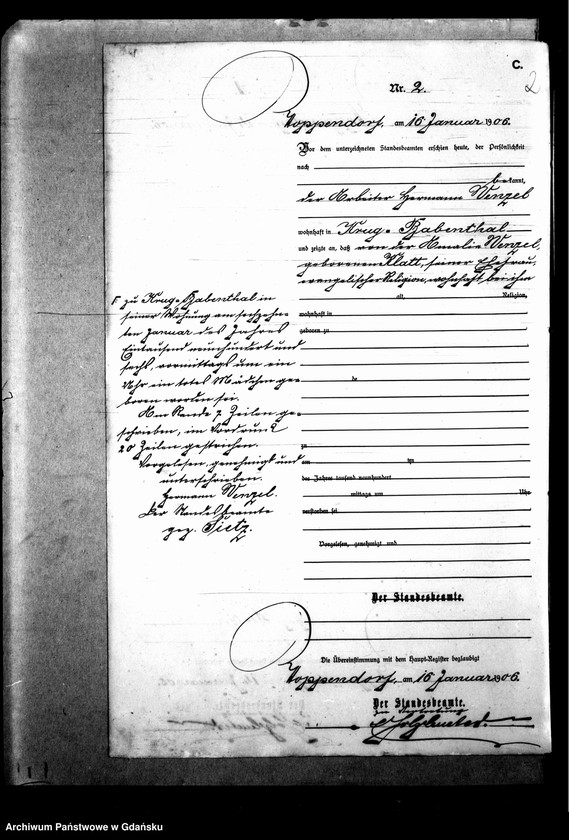 C.
2
Nr. 2.
Hoppendorf, am 16 Januar 1906.
Vor dem unterzeichneten Standesbeamten erschien heute, der Persönlichkeit
nach
bekannt,
der Arbeiter Hermann Wenzel
wohnhaft in Krug-Babenthal
und zeigte an, daß von der Amalie Wenzel,
geborenen Klatt, seiner Ehefrau,
evangelischer Religion, wohnhaft bei ihm
alt, Religion,
wohnhaft in
geboren zu
de
zu
am im
des Jahres tausend neunhundert
mittags um Uhr
verstorben sei.
Vorgelesen, genehmigt und
Der Standesbeamte.
zu Krug-Babenthal in
seiner Wohnung am sechzehn-
ten Januar des Jahres
Eintausend neunhundert und
sechs, vormittags um ein
Uhr ein totes Mädchen ge-
boren worden sei.
Am Rande 7 Zeilen ge-
schrieben, im Vordruck
20 Zeilen gestrichen.
Vorgelesen, genehmigt und
unterschrieben.
Hermann Wenzel.
Der Standesbeamte
gez. Tietz.
Die Übereinstimmung mit dem Haupt-Register beglaubigt
Hoppendorf, am 16 Januar 1906.
Der Standesbeamte.
Archiwum Państwowe w Gdańsku